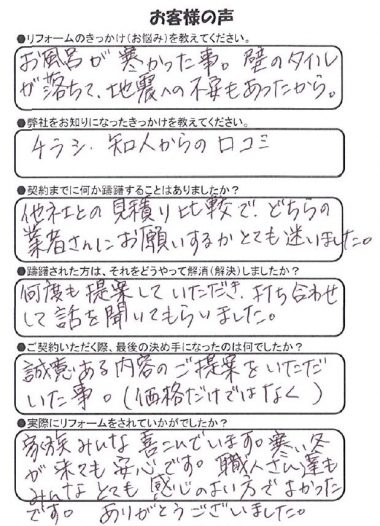 お客様の声
●リフォームのきっかけ(お悩み)を教えてください。
お風呂が寒かった事。壁のタイル
が落ちて、地震への不安もあったから。
●弊社をお知りになったきっかけを教えてください。
チラシ、知人からの口コミ
●契約までに何か躊躇することはありましたか?
他社との見積り比較で、どちらの
業者さんにお願いするかとても迷いました。
●躊躇された方は、それをどうやって解消(解決)しましたか?
何度も提案していただき、打ち合わせ
して話を聞いてもらいました。
●ご契約いただく際、最後の決め手になったのは何でしたか?
誠意ある内容のご提案をいただ
いた事。(価格だけではなく)
●実際にリフォームをされていかがでしたか?
家族みんな喜んでいます。寒い冬
が来ても安心です。職人さん達も
みんなとても感じのよい方でよかった
です。ありがとうございました。